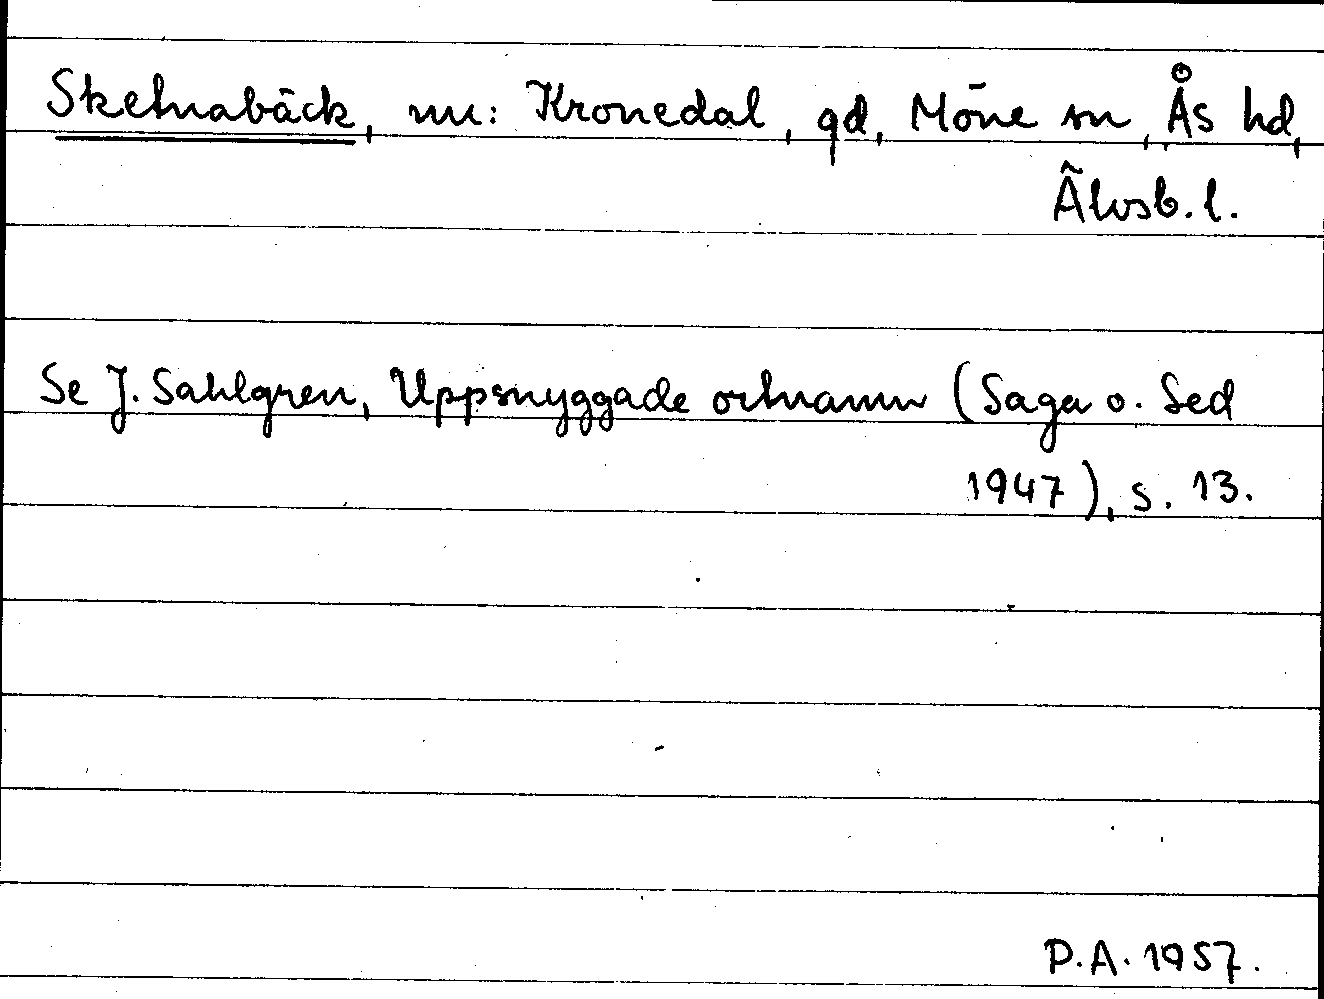 Sketnabäck, nu: Kronedal, gd, Möne sn, Ås hd,
Älvsb. l.
Se J. Sahlgren, Uppsnyggade ortnamn (Saga o. Sed
1947), s. 13.
P.A. 1957.